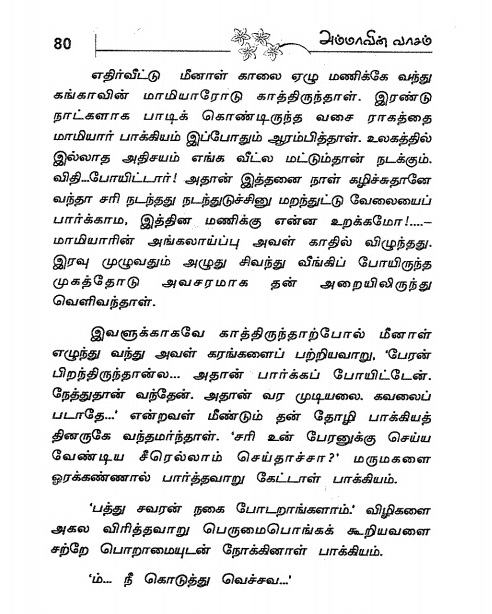 80
அம்மாவின் வாசம்
எதிர்வீட்டு மீனாள் காலை ஏழு மணிக்கே வந்து
கங்காவின் மாமியாரோடு காத்திருந்தாள். இரண்டு
நாட்களாக பாடிக் கொண்டிருந்த வசை ராகத்தை
மாமியார் பாக்கியம் இப்போதும் ஆரம்பித்தாள். உலகத்தில்
இல்லாத அதிசயம் எங்க வீட்ல மட்டும்தான் நடக்கும்.
விதி...போயிட்டார்! அதான் இத்தனை நாள் கழிச்சுதானே
வந்தா சரி நடந்தது நடந்துடுச்சினு மறந்துட்டு வேலையைப்
பார்க்காம, இத்தின மணிக்கு என்ன உறக்கமோ!....–
மாமியாரின் அங்கலாய்ப்பு அவள் காதில் விழுந்தது.
இரவு முழுவதும் அழுது சிவந்து வீங்கிப் போயிருந்த
முகத்தோடு அவசரமாக தன் அறையிலிருந்து
வெளிவந்தாள்.
இவளுக்காகவே காத்திருந்தாற்போல் மீனாள்
எழுந்து வந்து அவள் கரங்களைப் பற்றியவாறு, 'பேரன்
பிறந்திருந்தான்ல... அதான் பார்க்கப் போயிட்டேன்.
நேத்துதான் வந்தேன். அதான் வர முடியலை. கவலைப்
படாதே...' என்றவள் மீண்டும் தன் தோழி பாக்கியத்
தினருகே வந்தமர்ந்தாள். 'சரி உன் பேரனுக்கு செய்ய
வேண்டிய சீரெல்லாம் செய்தாச்சா?' மருமகளை
ஓரக்கண்ணால் பார்த்தவாறு கேட்டாள் பாக்கியம்.
'பத்து சவரன் நகை போடறாங்களாம்.' விழிகளை
அகல விரித்தவாறு பெருமைபொங்கக் கூறியவளை
சற்றே பொறாமையுடன் நோக்கினாள் பாக்கியம்.
'ம்... நீ கொடுத்து வெச்சவ...'